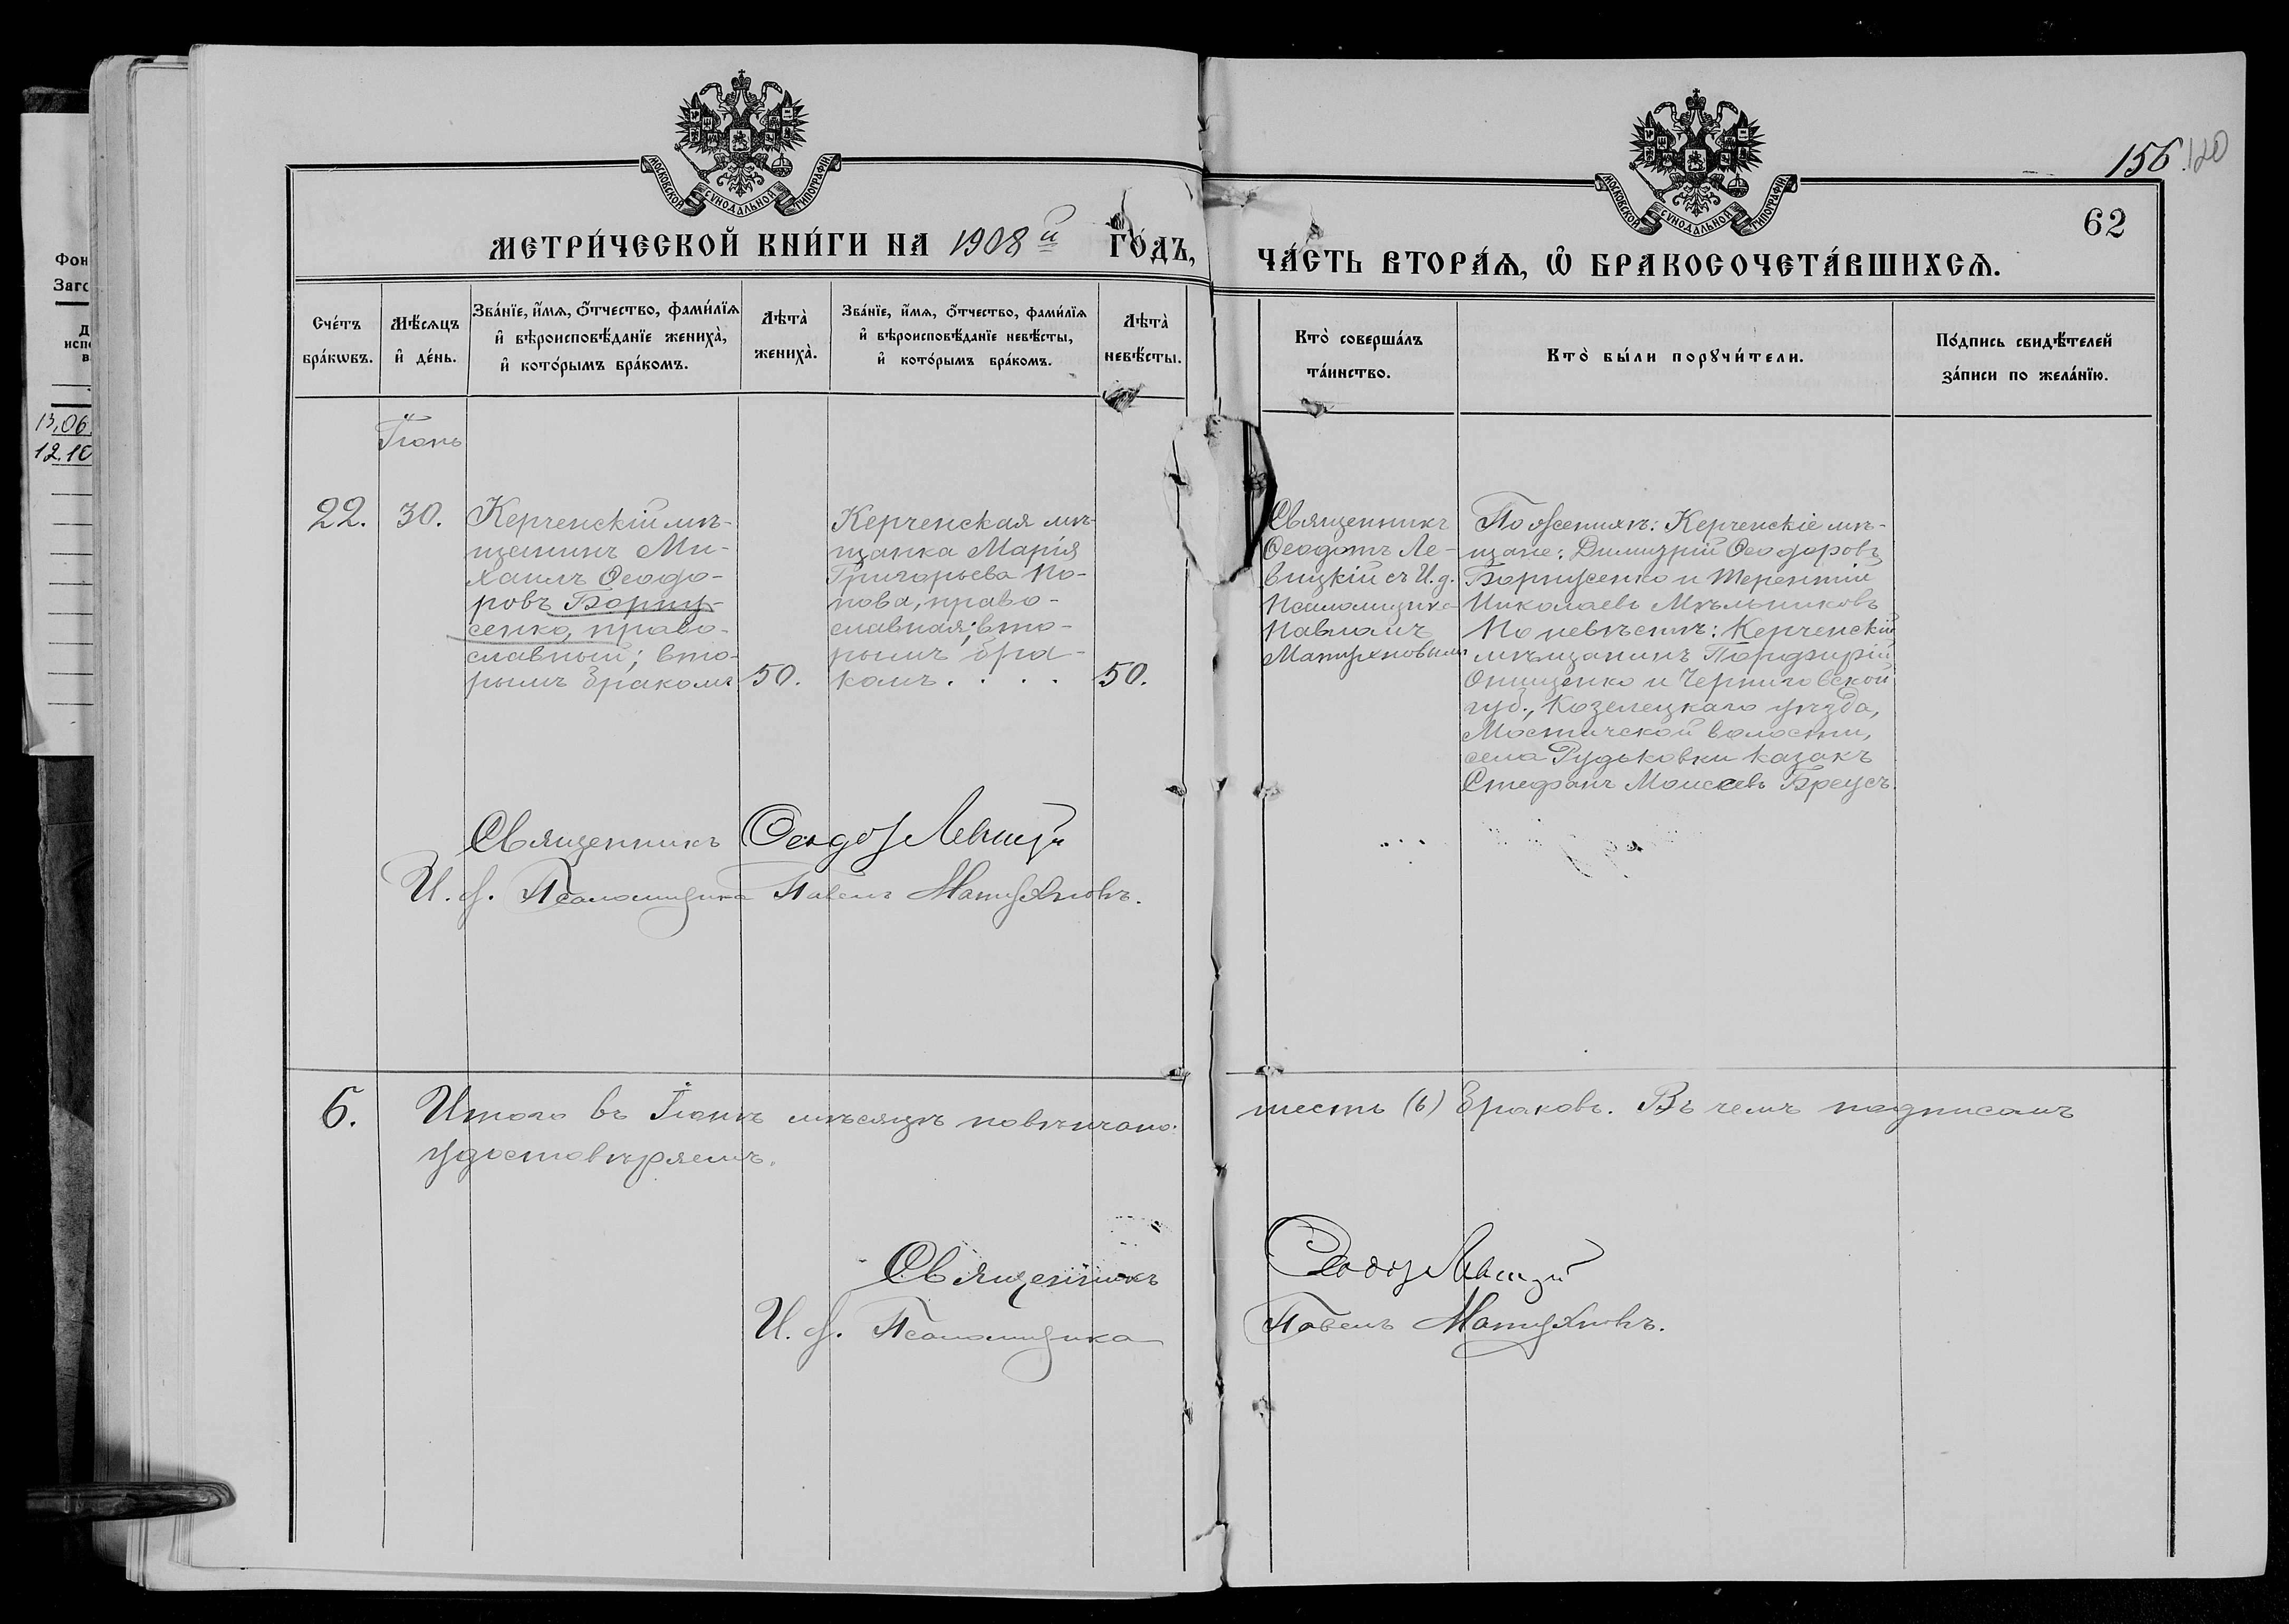 Фон
Заго
13,06.
12.10
МОСКОВСКОЙ СѴНОДАЛЬНОЙ ТИПОГРАФІИ
МЕТРИ́ЧЕСКОЙ КНИ́ГИ НА 1908й ГО́ДЪ,
Сче́тъ бра́кѡвъ.
Мѣ́сяцъ и҆ де́нь.
Зва́нїе, и҆́мѧ, ѻ҆́тчество, фами́лїѧ и҆ вѣроисповѣ́данїе женихà, и҆ кото́рымъ бра́комъ.
Лѣ́та женихà.
Зва́нїе, и҆́мѧ, ѻ҆́тчество, фами́лїѧ и҆ вѣроисповѣ́данїе невѣ́сты, и҆ кото́рымъ бра́комъ.
Лѣ́та невѣ́сты.
Іюнь
22.
30.
Керченскій мѣ-
щанинъ Ми-
хаилъ Ѳеодо-
ровъ Борису-
сенко, право-
славный; вто-
рымъ бракомъ
50.
Керченская мѣ-
щанка Марія
Григорьева По-
пова, право-
славная; вто-
рымъ бра-
комъ. . . .
50.
Священникъ Ѳеодотъ Левицкій
И. д. Псаломщика Павелъ Матухновъ.
6.
Итого въ Іюнѣ мѣсяцѣ повѣнчано
удостовѣряемъ.
Священникъ
И. д. Псаломщика
МОСКОВСКОЙ СѴНОДАЛЬНОЙ ТИПОГРАФІИ
156
120
62
ЧА́СТЬ ВТОРА́Ѧ, Ѡ҆ БРАКОСОЧЕТА́ВШИХСѦ.
Кто̀ соверша́лъ та́инство.
Кто̀ бы́ли порꙋчи́тели.
По́дпись свидѣ́телей за́писи по жела́нїю.
Священникъ
Ѳеодотъ Ле-
вицкій съ И. д.
Псаломщика
Павломъ
Матухновымъ
По женихѣ: Керченскіе мѣ-
щане: Димитрій Ѳеодоровъ
Борисенко и Терентій
Николаевъ Мѣльниковъ
По невѣстѣ: Керченскій
мѣщанинъ Порфирій
Онищенко и Черниговской
губ., Козелецкаго уѣзда,
Мостичской волости,
села Рудьковки казакъ
Стефанъ Моисеевъ Бреусъ.
шесть (6) браковъ. Въ чемъ подписомъ
Ѳеодотъ Левицкій
Павелъ Матухновъ.